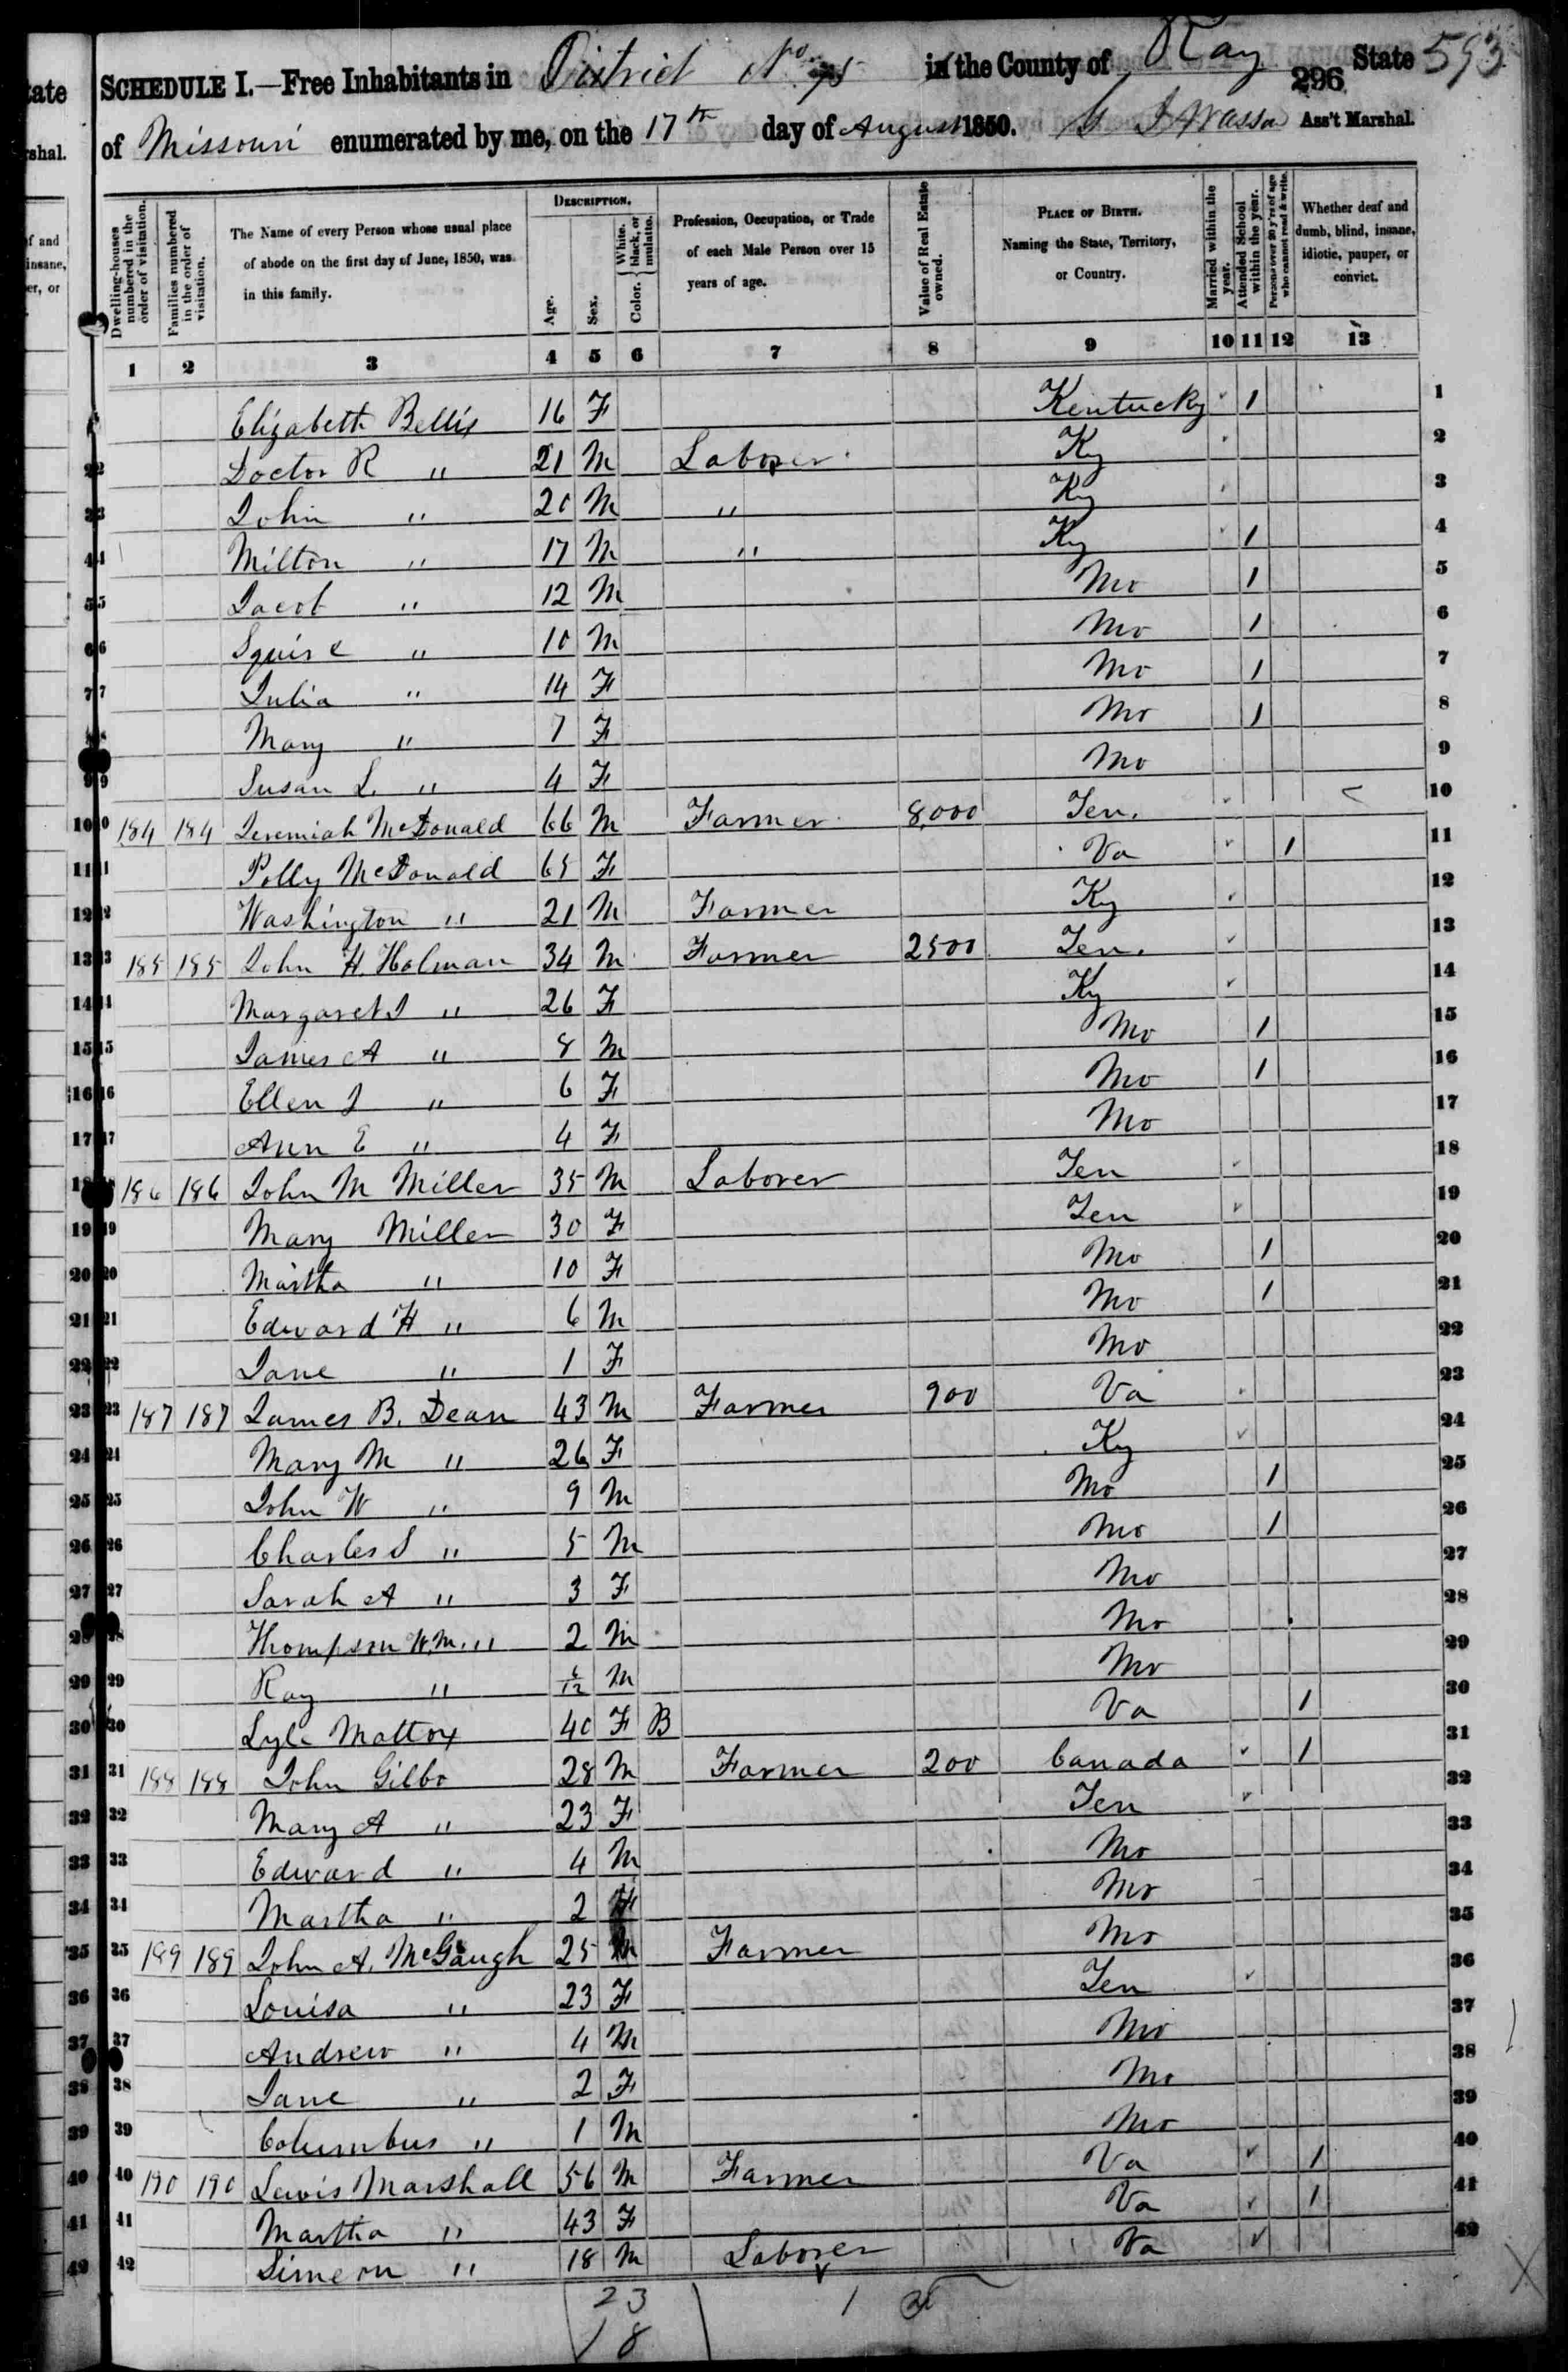 SCHEDULE I.—Free Inhabitants in District No 75 in the County of Ray State 593
296
of Missouri enumerated by me, on the 17th day of August 1850. Ass't Marshal.
Dwelling-houses numbered in the order of visitation. Families numbered in the order of visitation. The Name of every Person whose usual place of abode on the first day of June, 1850, was in this family. DESCRIPTION. Age. Sex. Color. White, black, or mulatto. Profession, Occupation, or Trade of each Male Person over 15 years of age. Value of Real Estate owned. PLACE OF BIRTH. Naming the State, Territory, or Country. Married within the year. Attended School within the year. Persons over 20 y'rs of age who cannot read & write. Whether deaf and dumb, blind, insane, idiotic, pauper, or convict.
1 2 3 4 5 6 7 8 9 10 11 12 13
1 Elizabeth Bellis 16 F Kentucky 1 1
2 Doctor R " 21 M Laborer Ky 2
3 John " 20 M " Ky 3
4 Milton " 17 M " Ky 1 4
5 Jacob " 12 M Mo 1 5
6 Squire " 10 M Mo 1 6
7 Julia " 14 F Mo 1 7
8 Mary " 7 F Mo 1 8
9 Susan L. " 4 F Mo 9
10 184 184 Jeremiah McDonald 66 M Farmer 8,000 Ten. 10
11 Polly McDonald 65 F Va 1 11
12 Washington " 21 M Farmer Ky 12
13 185 185 John H. Holman 34 M Farmer 2500 Ten. 13
14 Margaret J " 26 F Ky 14
15 James A " 8 M Mo 1 15
16 Ellen J " 6 F Mo 1 16
17 Ann E " 4 F Mo 17
18 186 186 John M Miller 35 M Laborer Ten 18
19 Mary Miller 30 F Ten 19
20 Martha " 10 F Mo 1 20
21 Edward H " 6 M Mo 1 21
22 Jane " 1 F Mo 22
23 187 187 James B. Dean 43 M Farmer 900 Va 23
24 Mary M " 26 F Ky 24
25 John W " 9 M Mo 1 25
26 Charles S " 5 M Mo 1 26
27 Sarah A " 3 F Mo 27
28 Thompson W.M. " 2 M Mo 28
29 Ray " 6/12 M Mo 29
30 Lyle Mattox 40 F B Va 1 30
31 188 188 John Gilbo 28 M Farmer 200 Canada 1 31
32 Mary A " 23 F Ten 32
33 Edward " 4 M Mo 33
34 Martha " 2 F Mo 34
35 189 189 John A. McGaugh 25 M Farmer Mo 35
36 Louisa " 23 F Ten 36
37 Andrew " 4 M Mo 37
38 Jane " 2 F Mo 38
39 Columbus " 1 M Mo 39
40 190 190 Lewis Marshall 56 M Farmer Va 1 40
41 Martha " 43 F Va 1 41
42 Simeon " 18 M Laborer Va 42
23 1
18